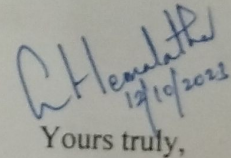 G Hemalatha
12/10/2023
Yours truly,